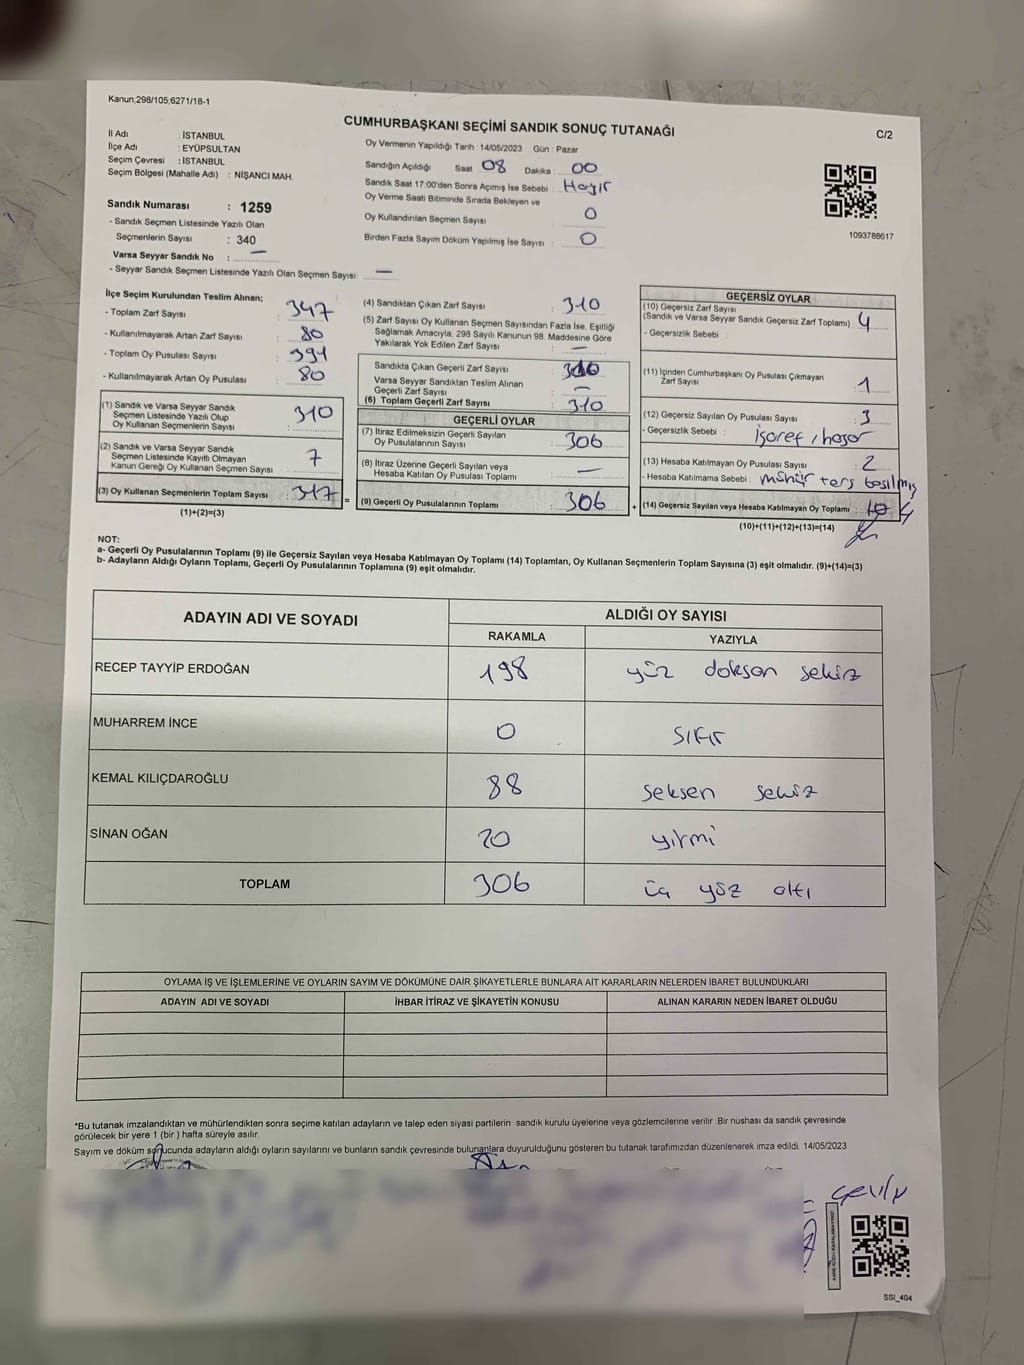 Kanun;298/105;6271/18-1
CUMHURBAŞKANI SEÇİMİ SANDIK SONUÇ TUTANAĞI
C/2
İl Adı : İSTANBUL
İlçe Adı : EYÜPSULTAN
Seçim Çevresi : İSTANBUL
Seçim Bölgesi (Mahalle Adı) : NİŞANCI MAH.
Sandık Numarası : 1259
- Sandık Seçmen Listesinde Yazılı Olan
Seçmenlerin Sayısı : 340
Varsa Seyyar Sandık No : —
- Seyyar Sandık Seçmen Listesinde Yazılı Olan Seçmen Sayısı: —
Oy Vermenin Yapıldığı Tarih : 14/05/2023 Gün : Pazar
Sandığın Açıldığı Saat 08 Dakika : 00
Sandık Saat 17:00'den Sonra Açımış İse Sebebi : Hayır
Oy Verme Saati Bitiminde Sırada Bekleyen ve
Oy Kullandırılan Seçmen Sayısı 0
Birden Fazla Sayım Döküm Yapılmış İse Sayısı : 0
1093788617
İlçe Seçim Kurulundan Teslim Alınan;
- Toplam Zarf Sayısı : 347
- Kullanılmayarak Artan Zarf Sayısı : 80
- Toplam Oy Pusulası Sayısı : 391
- Kullanılmayarak Artan Oy Pusulası : 80
(1) Sandık ve Varsa Seyyar Sandık
Seçmen Listesinde Yazılı Olup
Oy Kullanan Seçmenlerin Sayısı : 310
(2) Sandık ve Varsa Seyyar Sandık
Seçmen Listesinde Kayıtlı Olmayan
Kanun Gereği Oy Kullanan Seçmen Sayısı : 7
(3) Oy Kullanan Seçmenlerin Toplam Sayısı : 317 =
(1)+(2)=(3)
(4) Sandıktan Çıkan Zarf Sayısı : 310
(5) Zarf Sayısı Oy Kullanan Seçmen Sayısından Fazla İse, Eşitliği
Sağlamak Amacıyla, 298 Sayılı Kanunun 98. Maddesine Göre
Yakılarak Yok Edilen Zarf Sayısı : —
Sandıkta Çıkan Geçerli Zarf Sayısı : 310
Varsa Seyyar Sandıktan Teslim Alınan
Geçerli Zarf Sayısı : —
(6) Toplam Geçerli Zarf Sayısı : 310
GEÇERLİ OYLAR
(7) İtiraz Edilmeksizin Geçerli Sayılan
Oy Pusulalarının Sayısı : 306
(8) İtiraz Üzerine Geçerli Sayılan veya
Hesaba Katılan Oy Pusulası Toplamı : —
(9) Geçerli Oy Pusulalarının Toplamı : 306 +
GEÇERSİZ OYLAR
(10) Geçersiz Zarf Sayısı
(Sandık ve Varsa Seyyar Sandık Geçersiz Zarf Toplamı) : 4
- Geçersizlik Sebebi :
(11) İçinden Cumhurbaşkanı Oy Pusulası Çıkmayan
Zarf Sayısı : 1
(12) Geçersiz Sayılan Oy Pusulası Sayısı : 3
- Geçersizlik Sebebi : işaret / hasar
(13) Hesaba Katılmayan Oy Pusulası Sayısı : 2
- Hesaba Katılmama Sebebi : mühür ters basılmış
(14) Geçersiz Sayılan veya Hesaba Katılmayan Oy Toplamı : 10 4
(10)+(11)+(12)+(13)=(14)
NOT:
a- Geçerli Oy Pusulalarının Toplamı (9) ile Geçersiz Sayılan veya Hesaba Katılmayan Oy Toplamı (14) Toplamları, Oy Kullanan Seçmenlerin Toplam Sayısına (3) eşit olmalıdır. (9)+(14)=(3)
b- Adayların Aldığı Oyların Toplamı, Geçerli Oy Pusulalarının Toplamına (9) eşit olmalıdır.
ADAYIN ADI VE SOYADI ALDIĞI OY SAYISI
RAKAMLA YAZIYLA
RECEP TAYYİP ERDOĞAN 198 yüz doksan sekiz
MUHARREM İNCE 0 sıfır
KEMAL KILIÇDAROĞLU 88 seksen sekiz
SİNAN OĞAN 20 yirmi
TOPLAM 306 üç yüz altı
OYLAMA İŞ VE İŞLEMLERİNE VE OYLARIN SAYIM VE DÖKÜMÜNE DAİR ŞİKAYETLERLE BUNLARA AİT KARARLARIN NELERDEN İBARET BULUNDUKLARI
ADAYIN ADI VE SOYADI İHBAR İTİRAZ VE ŞİKAYETİN KONUSU ALINAN KARARIN NEDEN İBARET OLDUĞU
*Bu tutanak imzalandıktan ve mühürlendikten sonra seçime katılan adayların ve talep eden siyasi partilerin sandık kurulu üyelerine veya gözlemcilerine verilir. Bir nüshası da sandık çevresinde
görülecek bir yere 1 (bir) hafta süreyle asılır.
Sayım ve döküm sonucunda adayların aldığı oyların sayılarını ve bunların sandık çevresinde bulunanlara duyurulduğunu gösteren bu tutanak tarafımızdan düzenlenerek imza edildi. 14/05/2023
SSI_404